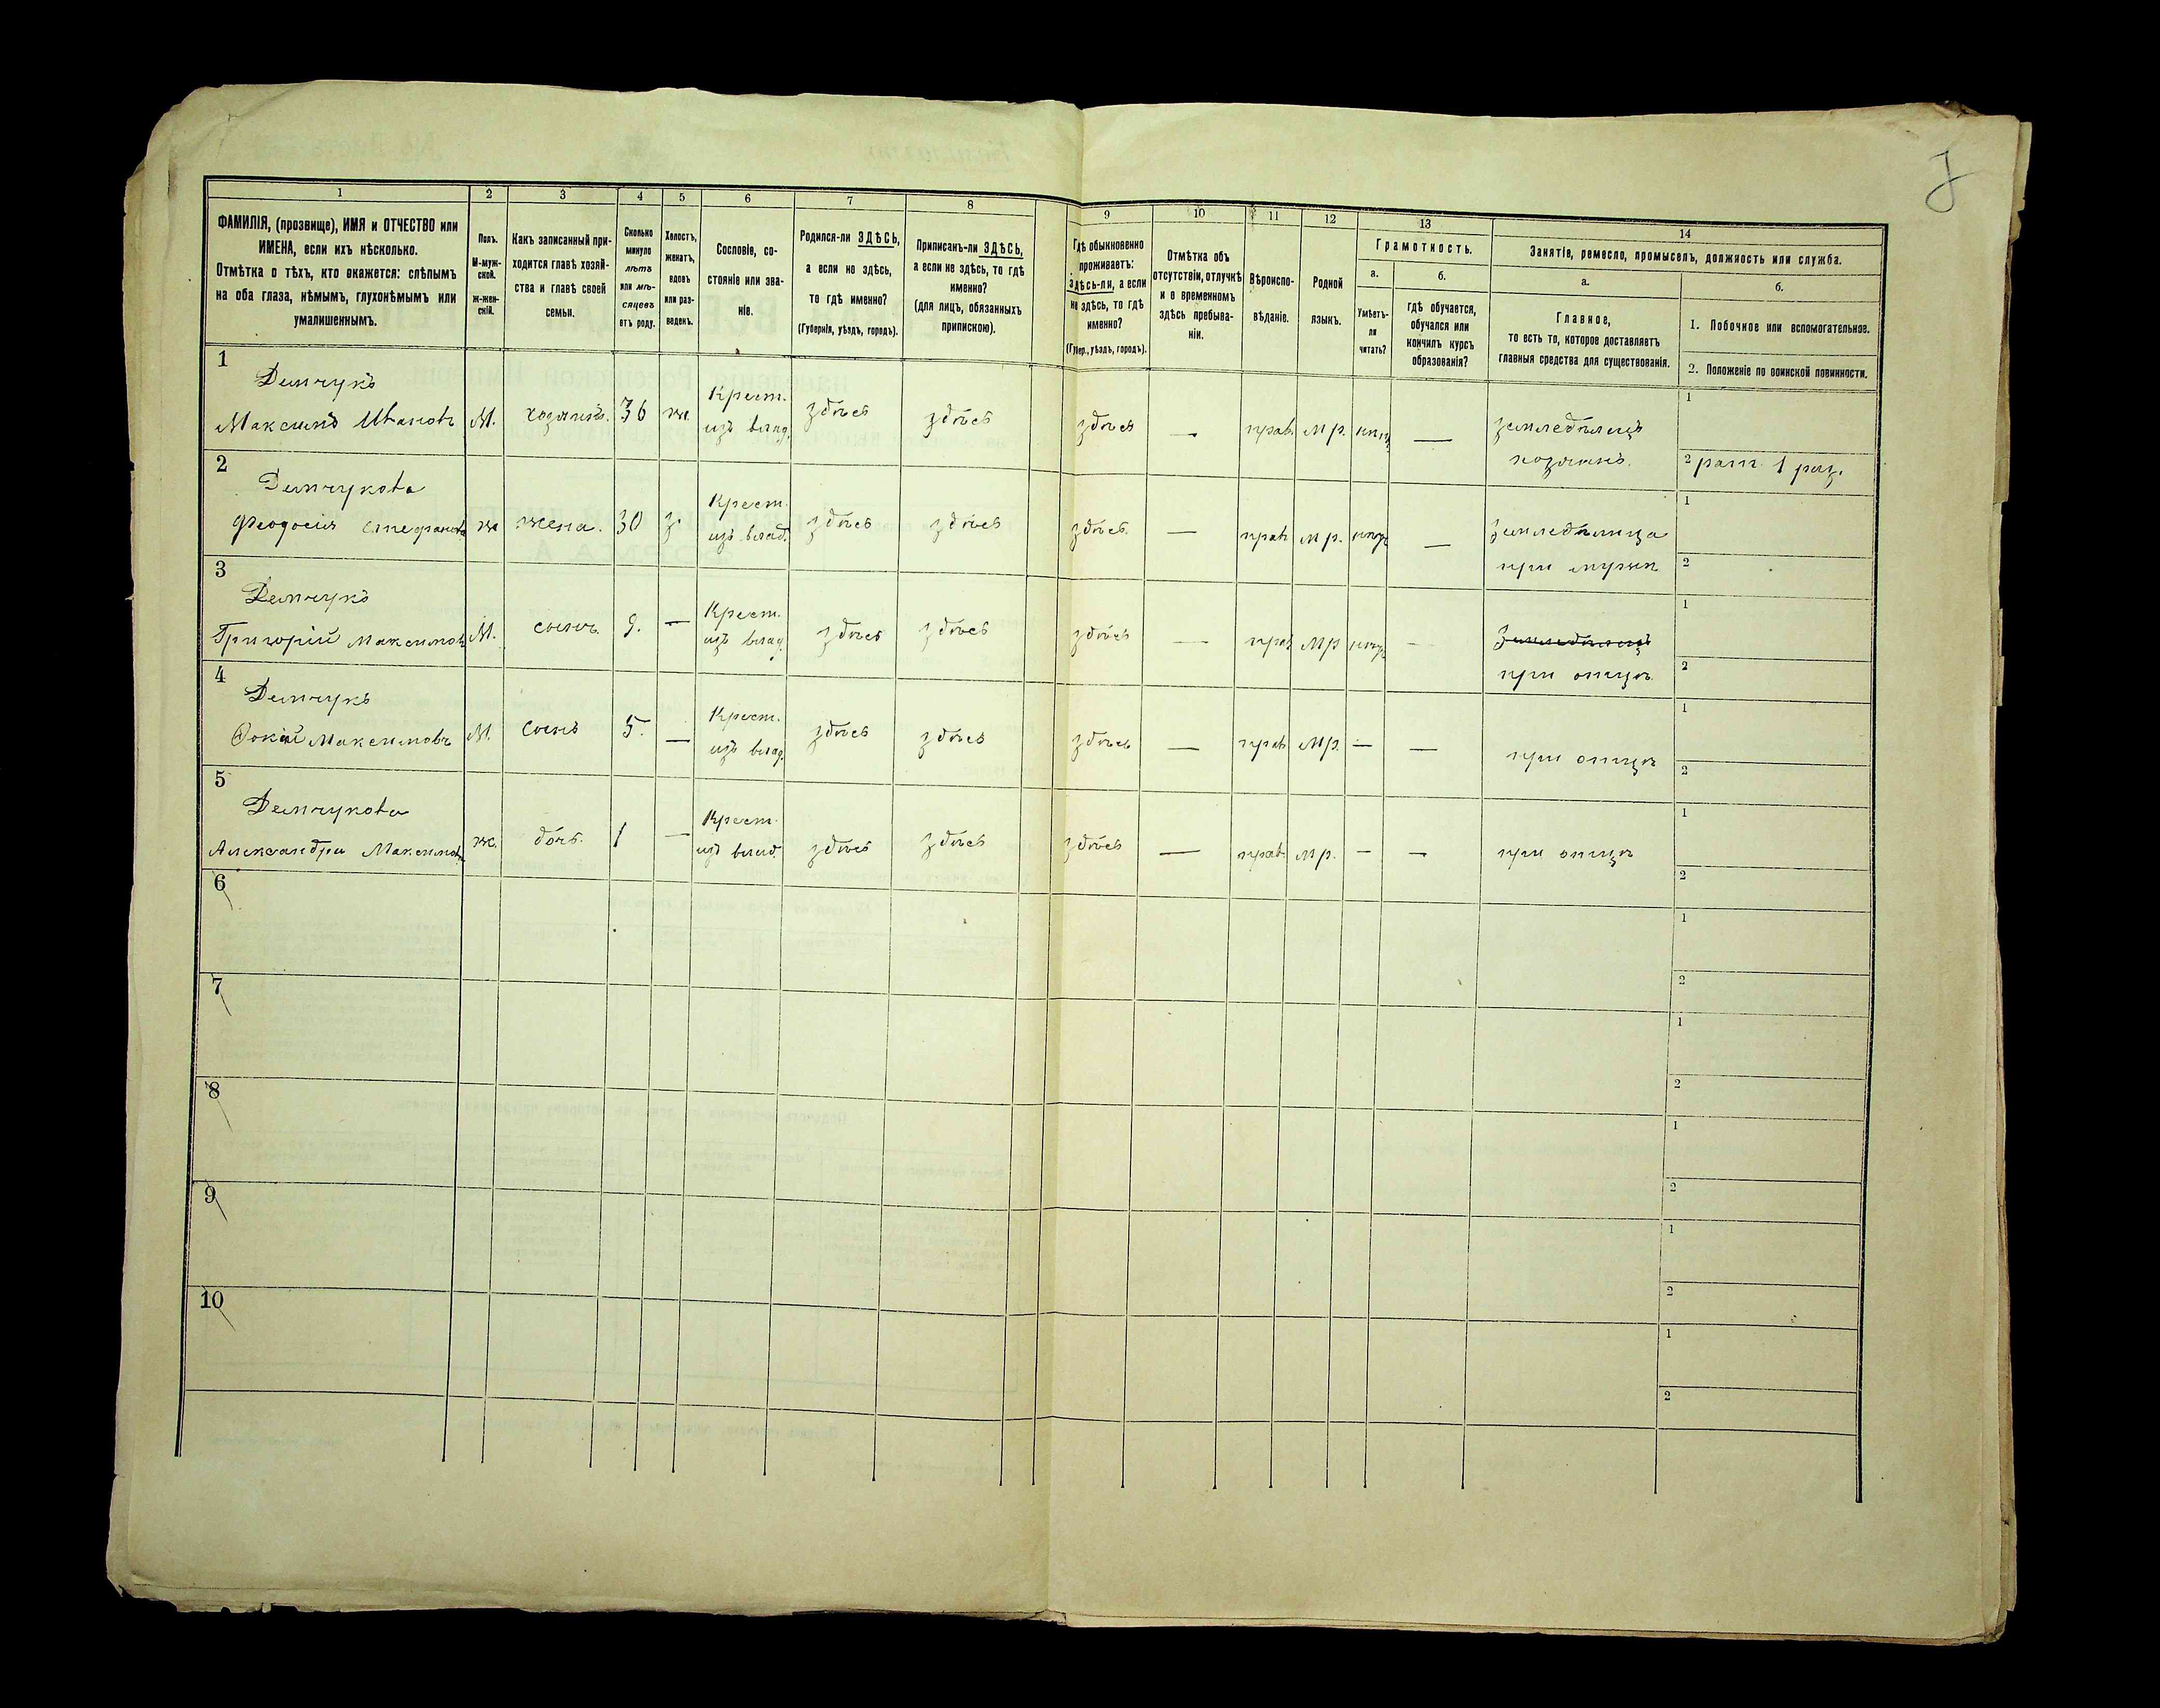 1 2 3 4 5 6 7 8 9 10 11 12 13 14
ФАМИЛІЯ, (прозвище), ИМЯ и ОТЧЕСТВО или
ИМЕНА, если ихъ нѣсколько.
Отмѣтка о тѣхъ, кто окажется: слѣпымъ
на оба глаза, нѣмымъ, глухонѣмымъ или
умалишеннымъ.
Полъ.
М-муж-
ской.
ж-жен-
скій.
Какъ записанный при-
ходится главѣ хозяй-
ства и главѣ своей
семьи.
Сколько
минуло
лѣтъ
или мѣ-
сяцевъ
отъ роду.
Холостъ,
женатъ,
вдовъ
или раз-
веденъ.
Сословіе, со-
стояніе или зва-
ніе.
Родился-ли ЗДѢСЬ,
а если не здѣсь,
то гдѣ именно?
(Губернія, уѣздъ, городъ).
Приписанъ-ли ЗДѢСЬ,
а если не здѣсь, то гдѣ
именно?
(для лицъ, обязанныхъ
припискою).
Гдѣ обыкновенно
проживаетъ:
здѣсь-ли, а если
не здѣсь, то гдѣ
именно?
(Губер., уѣздъ, городъ).
Отмѣтка объ
отсутствіи, отлучкѣ
и о временномъ
здѣсь пребыва-
ніи.
Вѣроиспо-
вѣданіе.
Родной
языкъ.
Грамотность.
а.
Умѣетъ-
ли
читать?
б.
Гдѣ обучается,
обучался или
кончилъ курсъ
образованія?
Занятіе, ремесло, промыселъ, должность или служба.
а.
Главное,
то есть то, которое доставляетъ
главныя средства для существованія.
б.
1. Побочное или вспомогательное.
2. Положеніе по воинской повинности.
1
Демчукъ
Максимъ Ивановъ М. хозяинъ. 36 ж. Крест. изъ влад. здѣсь здѣсь здѣсь — прав. мр. — землѣдѣлецъ хозяинъ.
1
2 рат. 1 раз.
2
Демчукова
Феодосія Стефанова ж жена. 30 з. Крест. изъ влад. здѣсь здѣсь здѣсь. — прав мр. — землѣдѣлица при мужѣ
1
2
3
Демчукъ
Григорій Максимовъ М. сынъ. 9. — Крест. изъ влад. здѣсь здѣсь здѣсь — прав мр — при отцѣ
1
2
4
Демчукъ
Максимовъ М. сынъ 5. — Крест. изъ влад. здѣсь здѣсь здѣсь — прав мр. — — при отцѣ
1
2
5
Демчукова
Александра Максимова ж. дочь. 1 — Крест. изъ влад. здѣсь здѣсь здѣсь — прав мр. — — при отцѣ
1
2
6
1
2
7
1
2
8
1
2
9
1
2
10
1
2